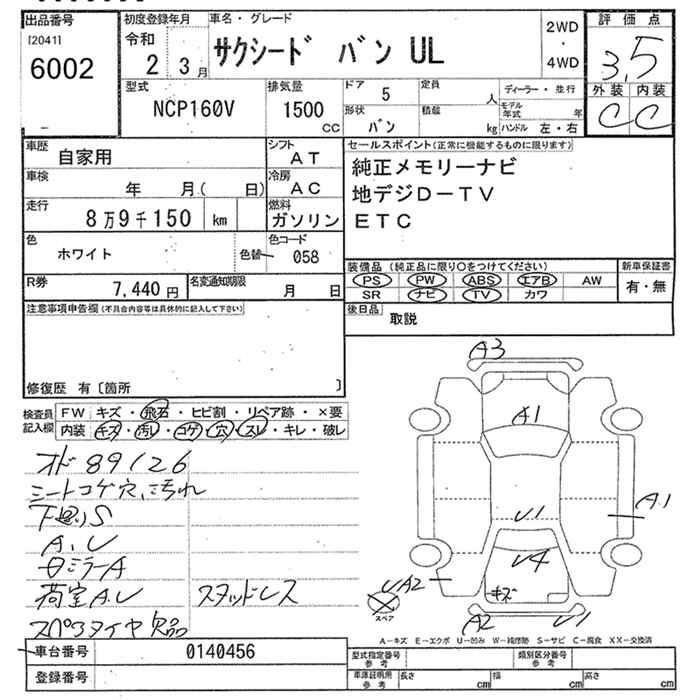 出品番号
[2041]
6002
初度登録年月
令和
2 3月
車名・グレード
サクシード バン UL
2WD
・
4WD
評価点
3.5
外装 内装
C C
型式
NCP160V
排気量
1500
CC
ドア
5
形状
バン
定員
人
積載
kg
ディーラー・並行
モデル年式 年
ハンドル 左・右
車歴
自家用
シフト
AT
車検
年 月( 日)
冷房
AC
走行
8万9千150 km
燃料
ガソリン
色
ホワイト
色替
色コード
058
R券
7,440 円
名変通知期限
月 日
セールスポイント(正常に機能するものに限ります)
純正メモリーナビ
地デジD-TV
ETC
装備品 (純正品に限り〇をつけてください)
PS PW ABS エアB AW
SR ナビ TV カワ
新車保証書
有・無
後日品
取説
注意事項申告欄(不具合内容等は具体的に記入して下さい)
修復歴 有〔箇所 〕
検査員
記入欄
FW キズ・飛石・ヒビ割・リペア跡・×要
内装 キズ・汚レ・コゲ・穴・スレ・キレ・破レ
オド 89126
シートコゲ穴、汚れ
下廻りS
A、U
日ミラーA
荷室A.U スタッドレス
スペアタイヤ欠品
A3
A1
A1
U1
U4
UA2
キズ
スペア
A2
U1
A-キズ E-エクボ U-凹み W-補修跡 S-サビ C-腐食 XX-交換済
車台番号
0140456
登録番号
型式指定番号
参考
類別区分番号
参考
車庫証明用
参考
長さ cm
幅 cm
高さ cm